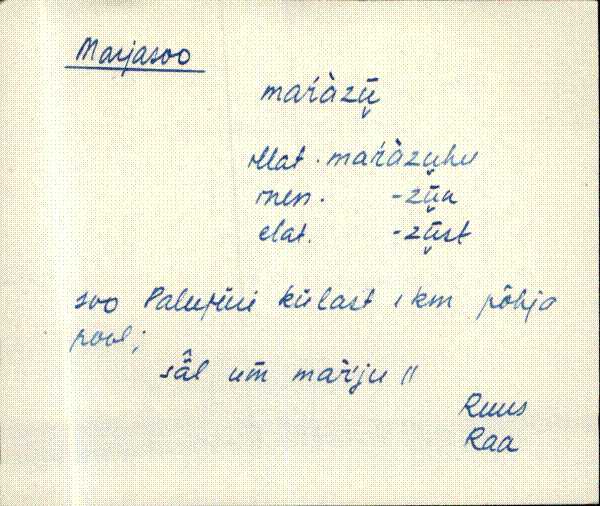 Marjasoo
maŕàzū̬
illat. maŕàzu̬hu
inen. -zū̬n
elat. -zū̬st
soo külast 1 km põhja
pool;
sâl um̄ maŕju ||
Ruus
Raa